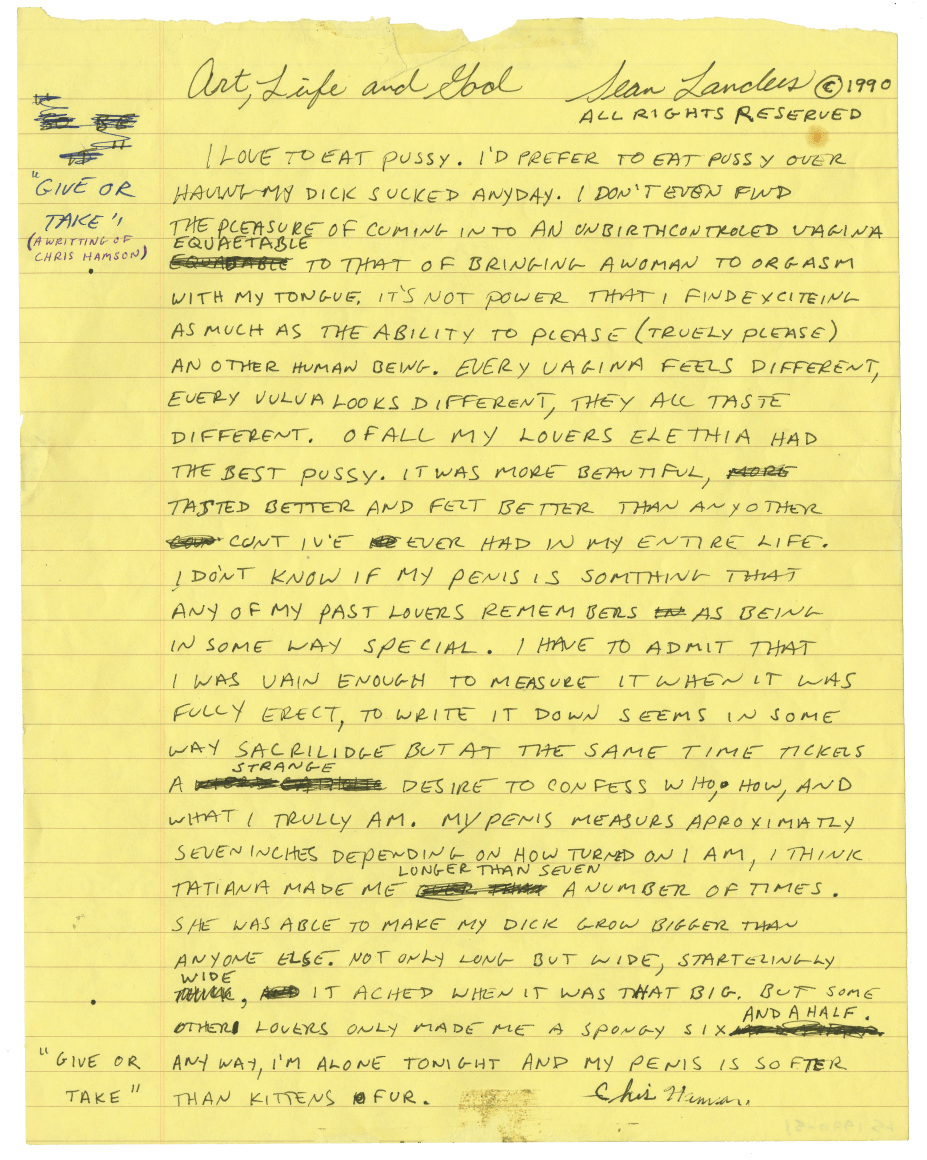 Art, Life and God Sean Landers © 1990
ALL RIGHTS RESERVED
"GIVE OR
TAKE",
(A WRITTING OF
CHRIS HAMSON)
I LOVE TO EAT PUSSY. I'D PREFER TO EAT PUSSY OVER
HAVING MY DICK SUCKED ANYDAY. I DON'T EVEN FIND
THE PLEASURE OF CUMING INTO AN UNBIRTHCONTROLED VAGINA
EQUAETABLE
TO THAT OF BRINGING A WOMAN TO ORGASM
WITH MY TONGUE. IT'S NOT POWER THAT I FIND EXCITEING
AS MUCH AS THE ABILITY TO PLEASE (TRUELY PLEASE)
AN OTHER HUMAN BEING. EVERY VAGINA FEELS DIFFERENT,
EVERY VULVA LOOKS DIFFERENT, THEY ALL TASTE
DIFFERENT. OF ALL MY LOVERS ELETHIA HAD
THE BEST PUSSY. IT WAS MORE BEAUTIFUL, MORE
TASTED BETTER AND FELT BETTER THAN ANYOTHER
CONT IV'E EVER HAD IN MY ENTIRE LIFE.
I DON'T KNOW IF MY PENIS IS SOMTHING THAT
ANY OF MY PAST LOVERS REMEMBERS AS BEING
IN SOME WAY SPECIAL. I HAVE TO ADMIT THAT
I WAS VAIN ENOUGH TO MEASURE IT WHEN IT WAS
FULLY ERECT, TO WRITE IT DOWN SEEMS IN SOME
WAY SACRILIDGE BUT AT THE SAME TIME TICKELS
STRANGE
A DESIRE TO CONFESS WHO, HOW, AND
WHAT I TRULLY AM. MY PENIS MEASURS APROXIMATLY
SEVEN INCHES DEPENDING ON HOW TURNED ON I AM, I THINK
LONGER THAN SEVEN
TATIANA MADE ME A NUMBER OF TIMES.
SHE WAS ABLE TO MAKE MY DICK GROW BIGGER THAN
ANYONE ELSE. NOT ONLY LONG BUT WIDE, STARTELINGLY
WIDE
, IT ACHED WHEN IT WAS THAT BIG. BUT SOME
AND A HALF.
OTHER LOVERS ONLY MADE ME A SPONGY SIX
"GIVE OR
TAKE"
ANY WAY, I'M ALONE TONIGHT AND MY PENIS IS SOFTER
THAN KITTENS FUR.